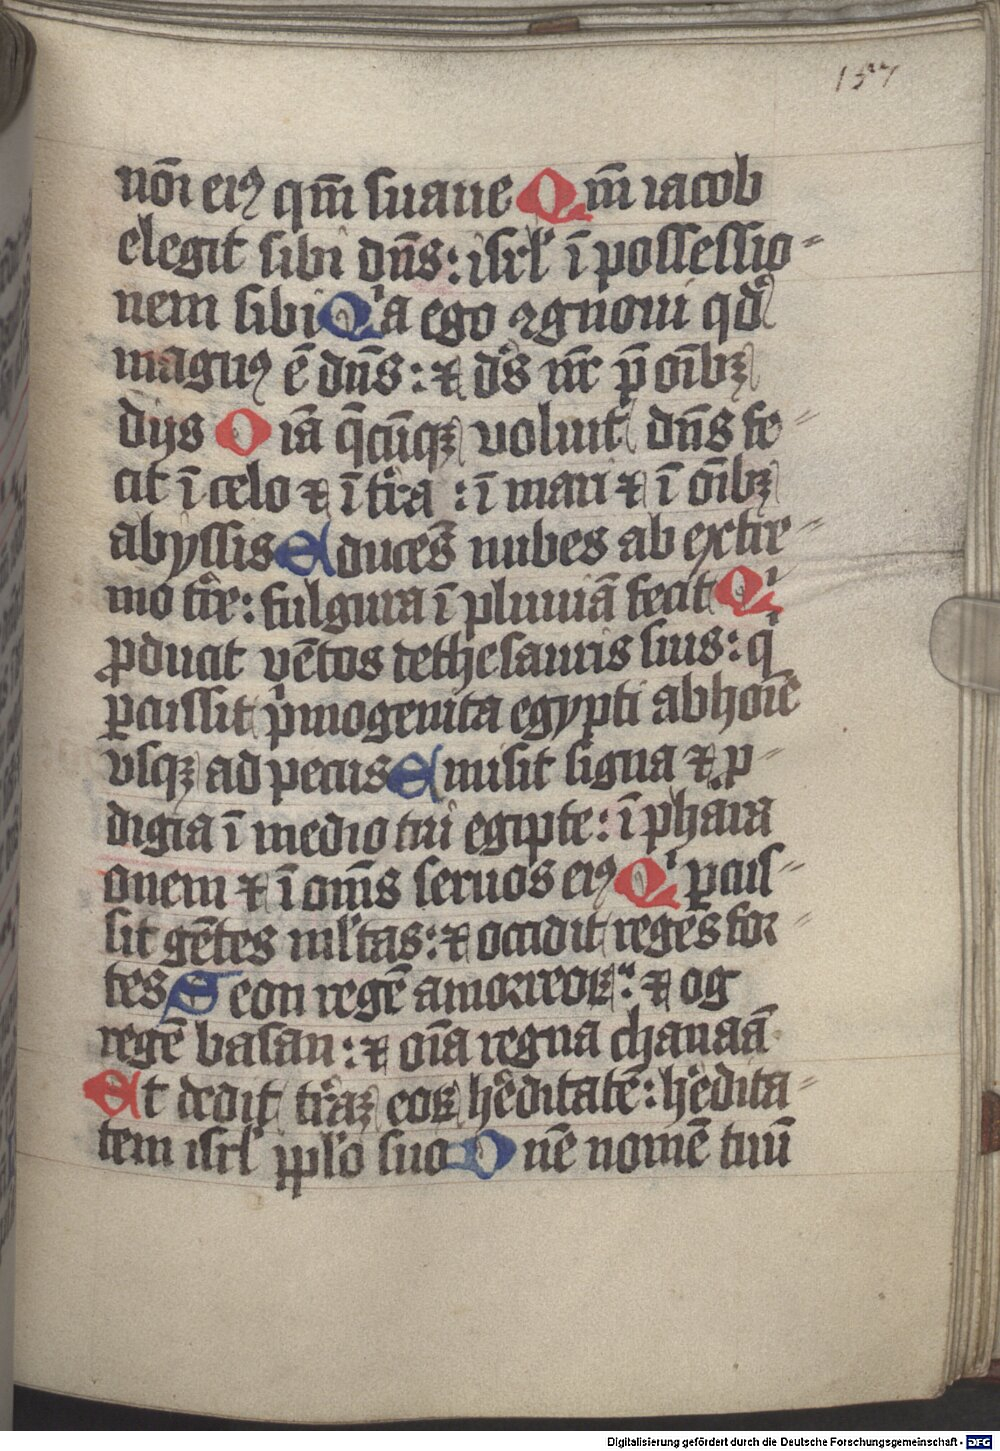 157
nōi eiꝰ qm̄ suaue Qm̄ iacob
elegit sibi dn̄s: isrl' ī possessio⸗
nem sibi Qͥa ego ꝯgnoui qd'
magnꝰ ē dn̄s: ⁊ ds̄ nr̄ p̄ oībꝫ
dijs Oīa q̄cūqꝫ voluit dn̄s fe⸗
cit ī celo ⁊ ī tr̄a : ī mari ⁊ ī oībꝫ
abyssis Educēs nubes ab extre⸗
mo tr̄e: fulgura ī pluuiā fecit Qͥ
ꝓducit vētos de thesauris suis: qͥ
ꝑcussit pͥmogenita egypti ab hoīe
vsqꝫ ad pecus Emisit signa ⁊ ꝓ⸗
digia ī medio tui egipte: ī phāra
onem ⁊ ī om̄s seruos eiꝰ Qͥ ꝑcus⸗
sit gētes ml'tas: ⁊ occidit reges for⸗
tes Seon regē amorreoꝝ: ⁊ og
regē basan: ⁊ oīa regna chanaā
Et dedit tr̄aꝫ eoꝝ hēditatē: hēdita⸗
tem isrl' ppl'o suo Dn̄e nomē tuū
Digitalisierung gefördert durch die Deutsche Forschungsgemeinschaft - DFG